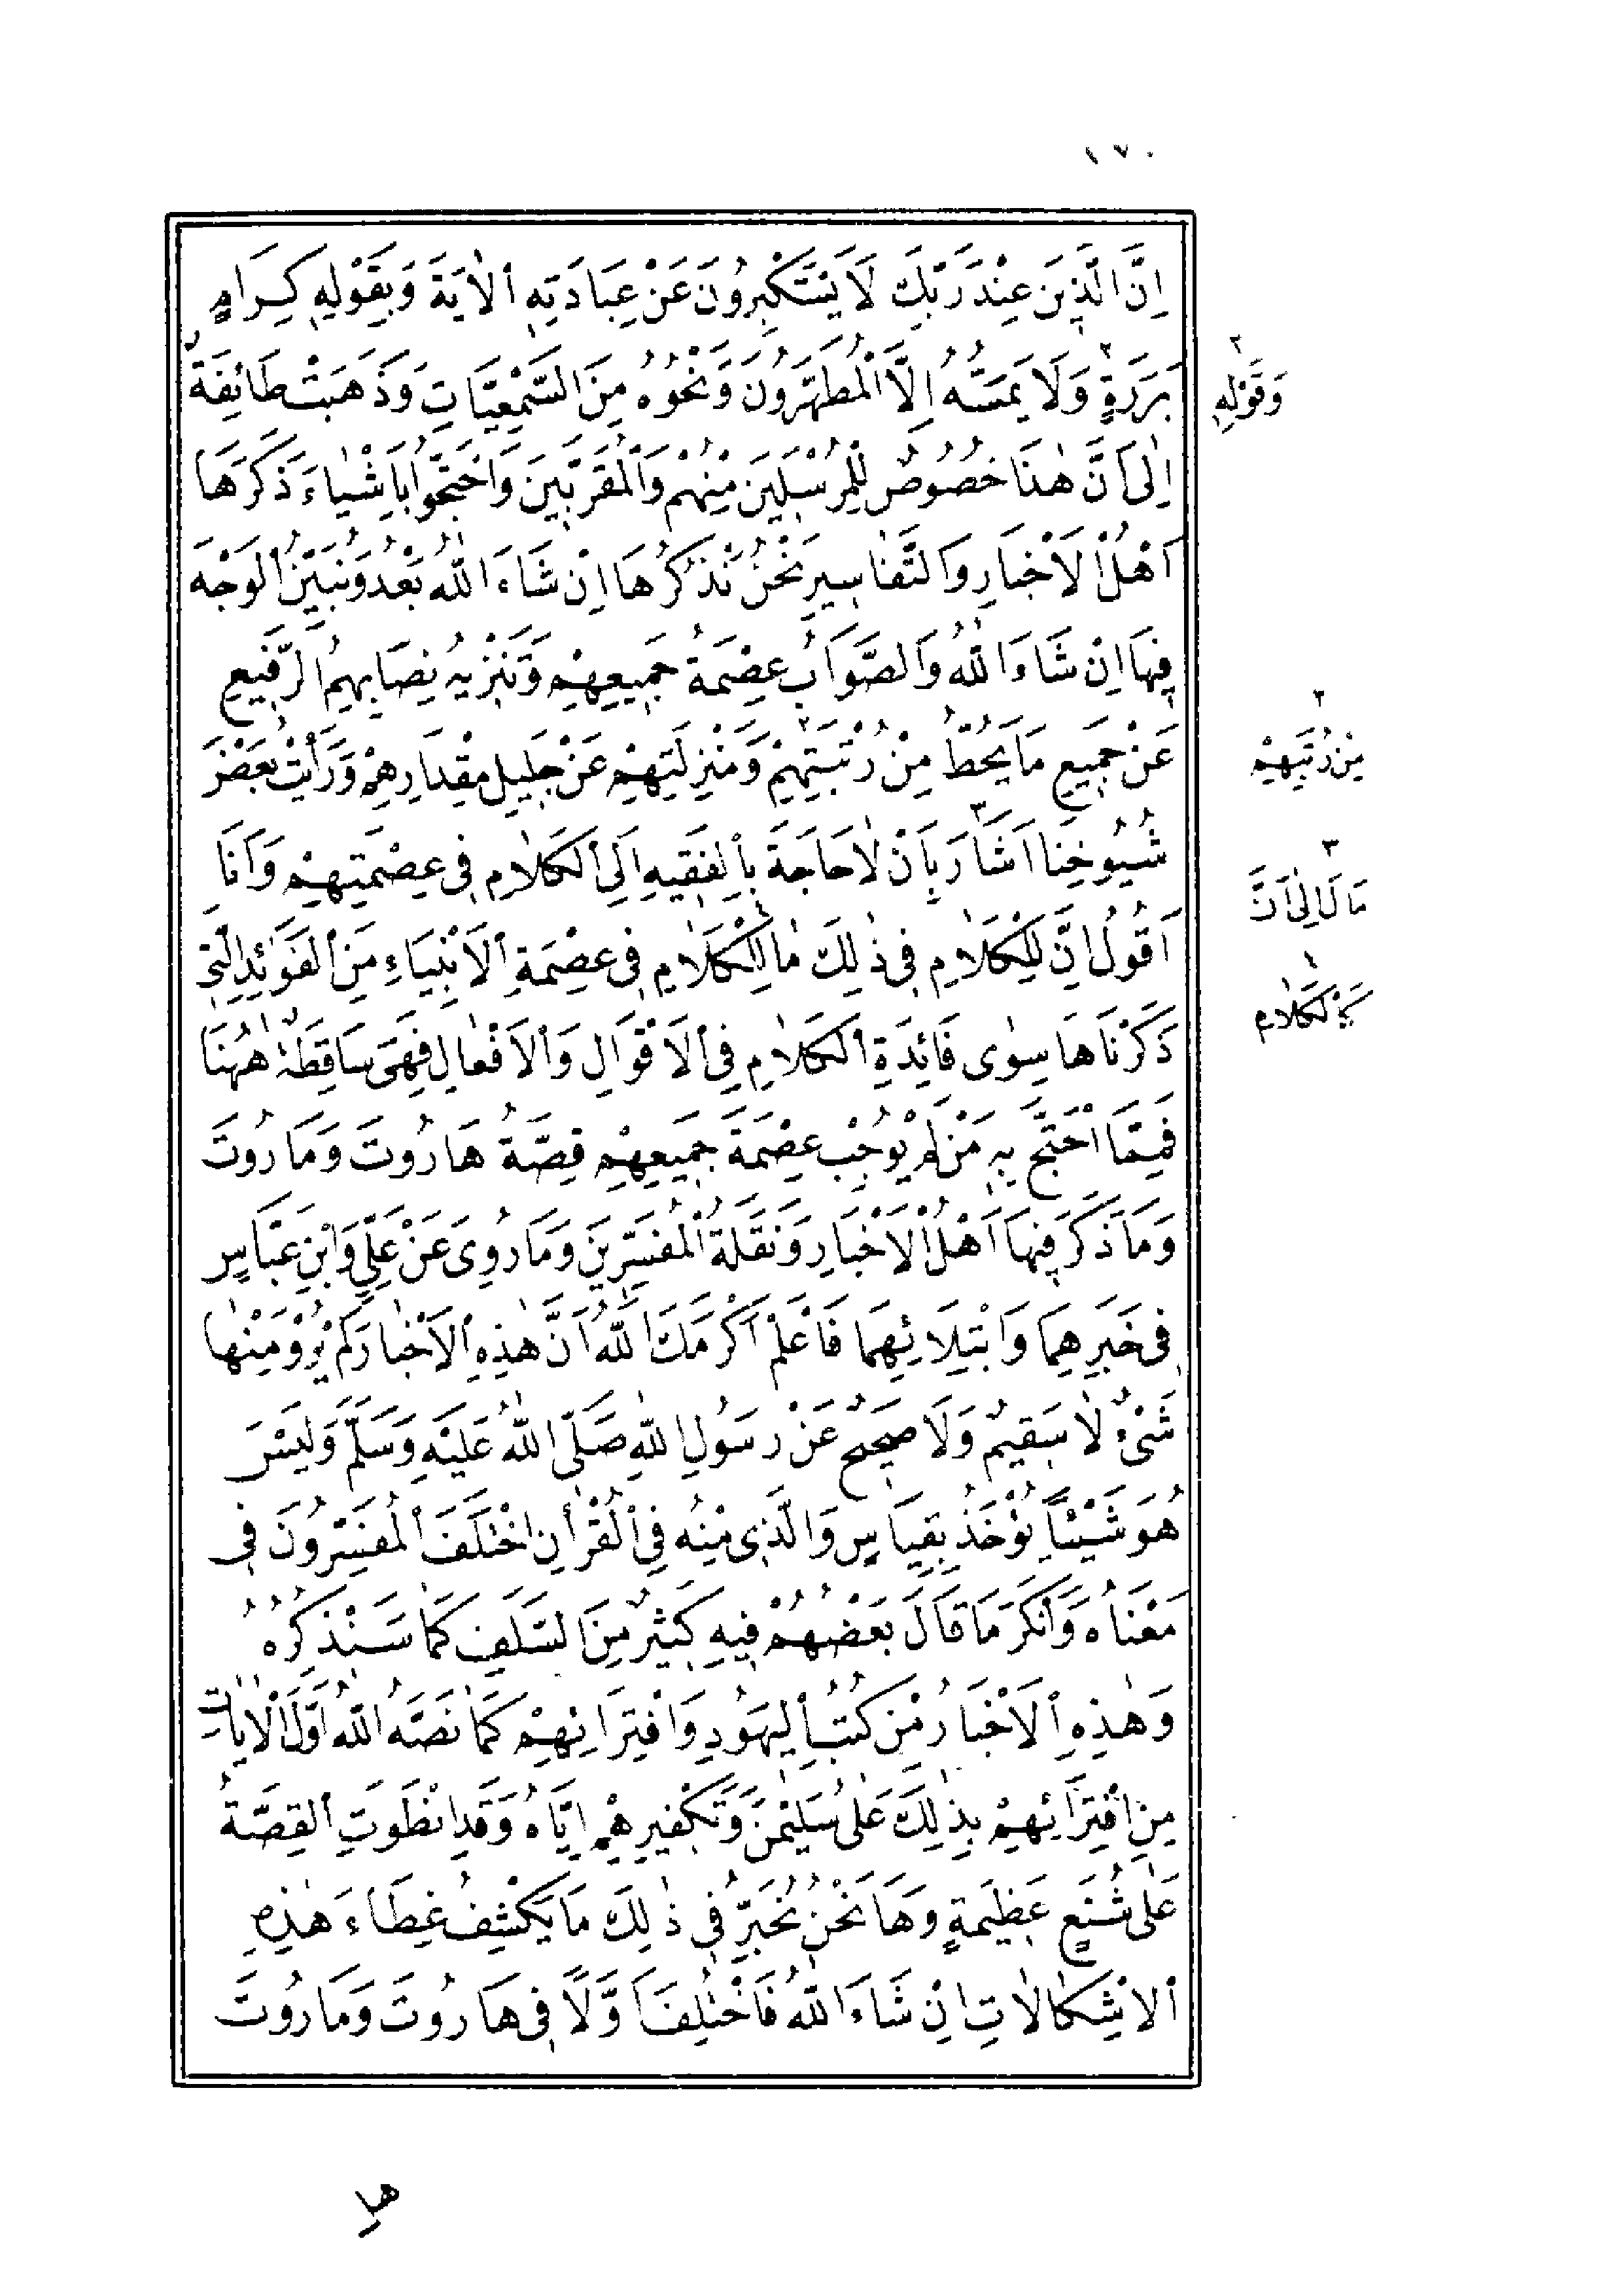 ١٧٠
اِنَّ الَّذِينَ عِنْدَ رَبِّكَ لَا يَسْتَكْبِرُونَ عَنْ عِبَادَتِهِ اْلاٰيَةَ وَبِقَوْلِهِ كِرَامٍ
بَرَرَةٍ وَلَا يَمَسُّهُ اِلَّا الْمُطَهَّرُونَ وَنَحْوُهُ مِنَ السَّمْعِيَّاتِ وَذَهَبَتْ طَائِفَةٌ
اِلٰى اَنَّ هٰذَا خُصُوصٌ لِلْمُرْسَلِينَ مِنْهُمْ وَالْمُقَرَّبِينَ وَاحْتَجُّوا بِاَشْيَاءَ ذَكَرَهَا
اَهْلُ اْلاَخْبَارِ وَالتَّفَاسِيرِ نَحْنُ نَذْكُرُهَا اِنْ شَاءَ اللّٰهُ بَعْدُ وَنُبَيِّنُ الْوَجْهَ
فِيهَا اِنْ شَاءَ اللّٰهُ وَالصَّوَابُ عِصْمَةُ جَمِيعِهِمْ وَتَنْزِيهُ نِصَابِهِمُ الرَّفِيعِ
عَنْ جَمِيعِ مَا يَحُطُّ مِنْ رُتْبَتِهِمْ وَمَنْزِلَتِهِمْ عَنْ جَلِيلِ مِقْدَارِهِمْ وَرَأَيْتُ بَعْضَ
شُيُوخِنَا اَشَارَ بِاَنْ لَا حَاجَةَ بِالْفَقِيهِ اِلَى الْكَلَامِ فِي عِصْمَتِهِمْ وَاَنَا
اَقُولُ اِنَّ لِلْكَلَامِ فِي ذٰلِكَ مَا لِلْكَلَامِ فِي عِصْمَةِ اْلاَنْبِيَاءِ مِنَ الْفَوَائِدِ الَّتِي
ذَكَرْنَاهَا سِوٰى فَائِدَةِ الْكَلَامِ فِي اْلاَقْوَالِ وَاْلاَفْعَالِ فَهِيَ سَاقِطَةٌ هٰهُنَا
فَمِمَّا احْتَجَّ بِهِ مَنْ لَمْ يُوجِبْ عِصْمَةَ جَمِيعِهِمْ قِصَّةُ هَارُوتَ وَمَارُوتَ
وَمَا ذَكَرَ فِيهَا اَهْلُ اْلاَخْبَارِ وَنَقَلَةُ الْمُفَسِّرِينَ وَمَا رُوِىَ عَنْ عَلِيٍّ وَابْنِ عَبَّاسٍ
فِي خَبَرِهِمَا وَابْتِلَائِهِمَا فَاعْلَمْ اَكْرَمَكَ اللّٰهُ اَنَّ هٰذِهِ اْلاَخْبَارَ لَمْ يُرْوَ مِنْهَا
شَىْءٌ لَا سَقِيمٌ وَلَا صَحِيحٌ عَنْ رَسُولِ اللّٰهِ صَلَّى اللّٰهُ عَلَيْهِ وَسَلَّمَ وَلَيْسَ
هُوَ شَيْئًا يُؤْخَذُ بِقِيَاسٍ وَالَّذِى مِنْهُ فِي الْقُرْاٰنِ اخْتَلَفَ الْمُفَسِّرُونَ فِي
مَعْنَاهُ وَاَنْكَرَ مَا قَالَ بَعْضُهُمْ فِيهِ كَثِيرٌ مِنَ السَّلَفِ كَمَا سَنَذْكُرُهُ
وَهٰذِهِ اْلاَخْبَارُ مِنْ كُتُبِ الْيَهُودِ وَافْتِرَائِهِمْ كَمَا نَصَّهُ اللّٰهُ اَوَّلَ اْلاٰيَاتِ
مِنِ افْتِرَائِهِمْ بِذٰلِكَ عَلٰى سُلَيْمٰنَ وَتَكْفِيرِهِمْ اِيَّاهُ وَقَدِ انْطَوَتِ الْقِصَّةُ
عَلٰى شُنَعٍ عَظِيمَةٍ وَهَا نَحْنُ نُحَبِّرُ فِي ذٰلِكَ مَا يَكْشِفُ غِطَاءَ هٰذِهِ
اْلاِشْكَالَاتِ اِنْ شَاءَ اللّٰهُ فَاخْتُلِفَ اَوَّلًا فِي هَارُوتَ وَمَارُوتَ
٢
وَقَوْلِهِ
٢
مِنْ رُتَبِهِمْ
٣
مَا لَا اِلٰى اَنَّ
٤
كَالْكَلَامِ
هل